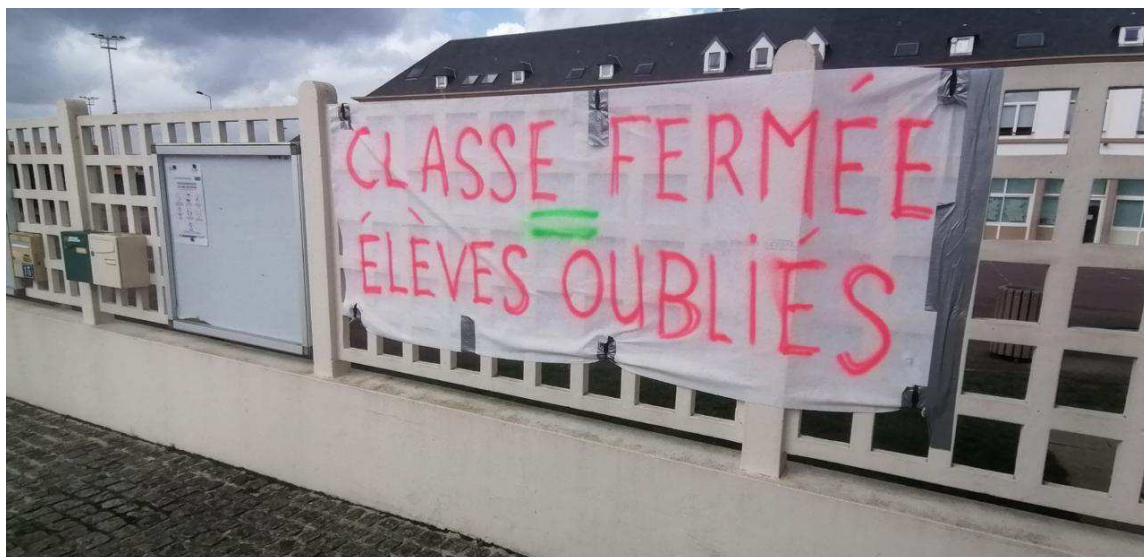 CLASSE FERMÉE
=
ÉLÈVES OUBLIÉS